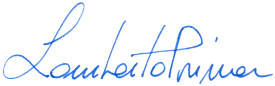 Lamberto Primer